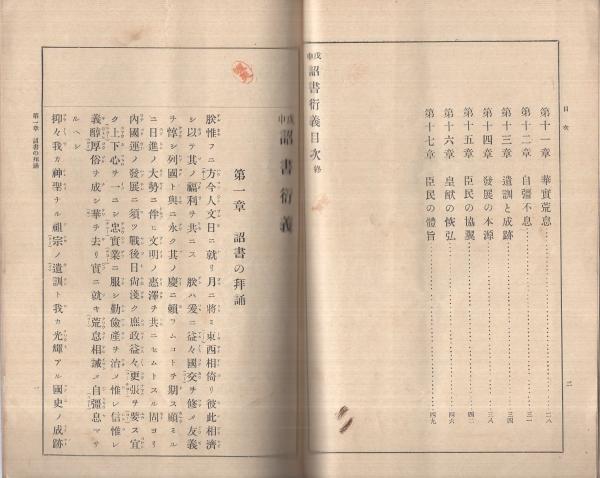 目次
第十一章　華實荒怠……二八
第十二章　自彊不息……三一
第十三章　遺訓と成跡……三四
第十四章　發展の本源……三八
第十五章　臣民の協翼……四二
第十六章　皇猷の恢弘……四六
第十七章　臣民の體旨……四九
戊申 詔書衍義目次 終
二
戊申 詔書衍義
第一章　詔書の拜誦
朕惟フニ方今人文日ニ就リ月ニ將ミ東西相倚リ彼此相濟
シ以テ其ノ福利ヲ共ニス　朕ハ爰ニ益々國交ヲ修メ友義
ヲ惇シ列國ト與ニ永ク其ノ慶ニ賴ラムコトヲ期ス顧ミル
ニ日進ノ大勢ニ伴ヒ文明ノ惠澤ヲ共ニセムトスル固ヨリ
內國運ノ發展ニ須ツ戰後日尙淺ク庶政益々更張ヲ要ス宜
ク上下心ヲ一ニシ忠實業ニ服シ勤儉產ヲ治メ惟レ信惟レ
義醇厚俗ヲ成シ華ヲ去リ實ニ就キ荒怠相誡メ自彊息マサ
ルヘシ
抑々我カ神聖ナル祖宗ノ遺訓ト我カ光輝アル國史ノ成跡
第一章　詔書の拜誦
一